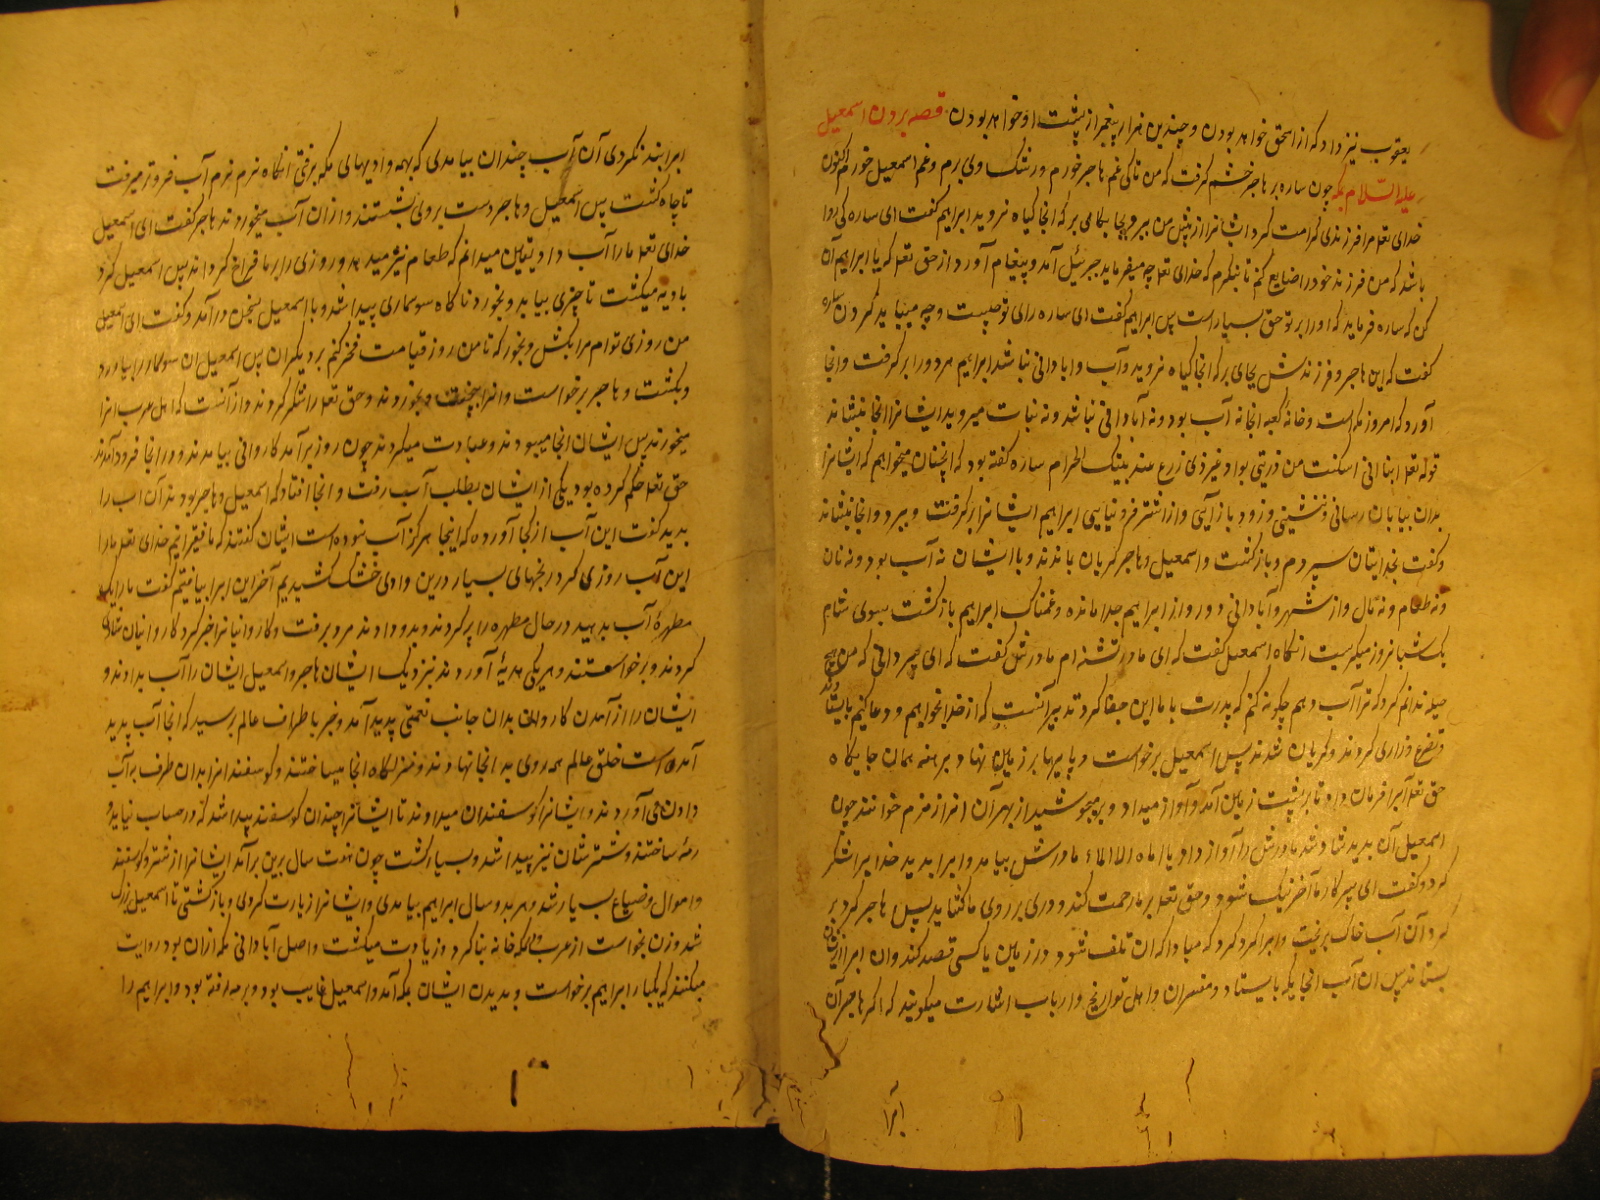 یعقوب نیز داد که از اسحق خواهد بودن و چندین هزار پیغمبر از پشت او خواهد بودن قصه بردن اسمعیل
علیه السلام بمکه چون ساره بر هاجر خشم گرفت که من تا کی غم هاجر خورم ورشک وی برم وغم اسمعیل خورم اکنون
خدای تعا مرا فرزندی کرامت کرد ایشانرا از پیش من ببر وبجا بکامی بر که انجا کیاه نروید ابراهیم کفت ای ساره کی روا
باشد که من فرزند خود را ضایع کنم تا بنکرم که خدای تعا چه میفرماید جبرئیل آمد و پیغام آورد از حق تعا که یا ابراهیم آن
کن که ساره فرماید که او را بر تو حق بسیار است پس ابراهیم کفت ای ساره رای تو چیست وچه میباید کردن ساره
کفت که این هاجر و فرزندش بجای بر که انجا کیاه نروید وآب وابادانی نباشد ابراهیم هر دو را بر کرفت وانجا
آورد که امروز مکه است وخانۀ کعبه انجا نه آب بود ونه آبادانی نباشد ونه نبات میروید ایشانرا انجا بنشاند
قوله تعا ربنا انی اسکنت من ذریتی بواد غیر ذی زرع عند بیتک الحرام ساره کفته بود که انچنان میخواهم که ایشانرا
بدان بیابان رسانی وننشینی و زود باز آیی واز اشتر فرو نیایی ابراهیم ایشانرا بر کرفت وببرد وانجا بنشاند
وکفت بخدایتان سپردم و بازکشت واسمعیل وهاجر کریان بماندند وبا ایشان نه آب بود ونه نان
ونه طعام ونه مال واز شهر وآبادانی دور واز ابراهیم جدا مانده وغمناک ابراهیم بازکشت بسوی شام
یک شبانروز میکریست انکاه اسمعیل کفت که ای مادر تشنه ام مادرش کفت که ای پسر دانی که من هیچ
حیله ندانم کرد که ترا آب دهم چکونه کنم که پدرت با ما این جفا کرد تدبیر آنست که از خدا بخواهیم و دعا کنیم بایستادند
وتضرع وزاری کردند وکریان شدند پس اسمعیل برخواست و پایها بر زمین نهاد برهنه بمان جایکاه
حق تعا آبرا فرمان داد تا بر پشت زمین آمد وآواز میداد و برمیجوشید از بهر آن انرا زمزم خوانند چون
اسمعیل آن بدید شاد شد مادرش را آواز داد یا اماه الا الماء مادرش بیامد وابرا بدید خدایرا شکر
کرد وکفت ای پسر کار ما آخر نیک شود وحق تعا بر ما رحمت کند ودری بر روی ما کشاید پس هاجر کرد بر
کرد آن آب خاک بریخت وابرا کرد کرد که مبادا که ان تلف شود در زمین یا کسی قصد کند وان ابرا از ایشان
بستاند پس ان آب انجایکه بایستاد ومفسران واهل تواریخ وارباب اشارت میکویند که اکر هاجر آن
ابرا
ابرا بند نکردی آن آب چندان بیامدی که بهمه وادیهای مکه برفتی انکاه نرم نرم آب فروتر میرفت
تا چاه کشت پس اسمعیل وهاجر دست بروی بشستند وازان آب میخوردند هاجر کفت ای اسمعیل
خدای تعا ما را آب داد یقین میدانم که طعام نیز میدهد وروزی را بر ما فراخ کرداند پس اسمعیل کرد
بادیه میکشت تا چیزی بیابد و بخورد ناکاه سوسماری پیدا شد وبا اسمعیل بسخن درآمد وکفت ای اسمعیل
من روزی توام مرا بکش وبخور که تا من روز قیامت فخر کنم بر دیکران پس اسمعیل ان سوسمار را بیاورد
وبکشت و هاجر برخواست وانرا بپخت وبخوردند وحق تعا را شکر کردند وازآنست که اهل عرب انرا
میخورند پس ایشان انجا میبودند وعبادت میکردند چون روز برآمد کاروانی بیامدند ودر انجا فرود آمدند
حق تعا حکم کرده بود یکی از ایشان بطلب آب رفت وانجا افتاد که اسمعیل وهاجر بودند آن اب را
بدید کفت این آب از کجا آورده که اینجا هرکز آب نبوده است ایشان کفتند که ما فقیرانیم خدای تعا ما را
این آب روزی کرد رنجهای بسیار درین وادی خشک کشیدیم آخر این ابرا بیافتیم کفت ما را یک
مطهرۀ آب بدهید در حال مطهره را پر کردند وبدو دادند مرد برفت وکاروانیانرا خبر کرد کاروانیان شادی
کردند وبرخواستند وهر یکی هدیۀ آوردند نزدیک ایشان هاجر واسمعیل ایشان را آب بدادند و
ایشان را از آمدن کاروان بدان جانب نعمتی پدید آمد وخبر باطراف عالم برسید که انجا آب پدید
آمده است خلق عالم همه روی بدانجا نهادند ومنزلکاه انجا میساختند وکوسفندانرا بدان طرف به آب
دادن می آوردند وایشانرا کوسفندان میدادند تا ایشانرا چندان کوسفند پیدا شد که در حساب نیاید و
رمۀ ساختند وشترشان نیز پیدا شد وبسیار کشت چون هفت سال برین برآمد ایشانرا از شتر وکوسفند
واموال وضیاع بسیار شد وهر بدو سال ابراهیم بیامدی وایشانرا زیارت کردی وبازکشتی تا اسمعیل بزرک
شد وزن بخواست از عرب ومکه خانه بنا کرد وزیادت میکشت واصل آبادانی مکه ازان بود روایت
میکنند که یکبار ابراهیم برخواست وبدیدن ایشان بمکه آمد واسمعیل غایب بود وبره رفته بود وابراهیم را